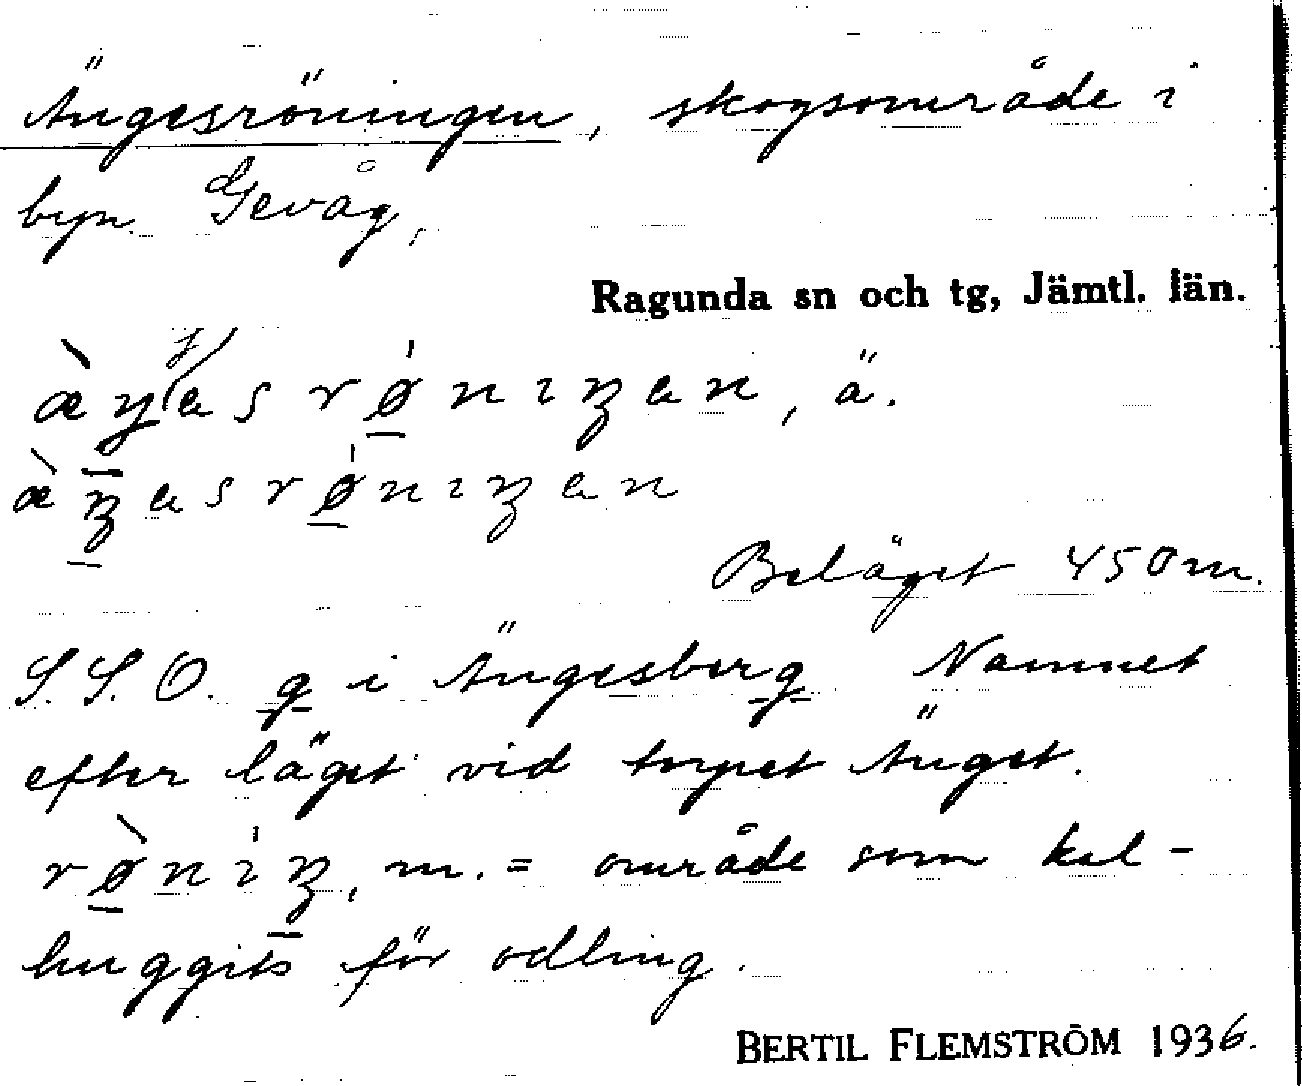 Ängesröningen, skogsområde i
byn Gevåg,
Ragunda sn och tg, Jämtl. län.
Beläget 450 m.
S.S.O. g i Ängesberg Namnet
efter läget vid torpet Änget.
m. = område som kal-
huggits för odling.
BERTIL FLEMSTRÖM 1936.